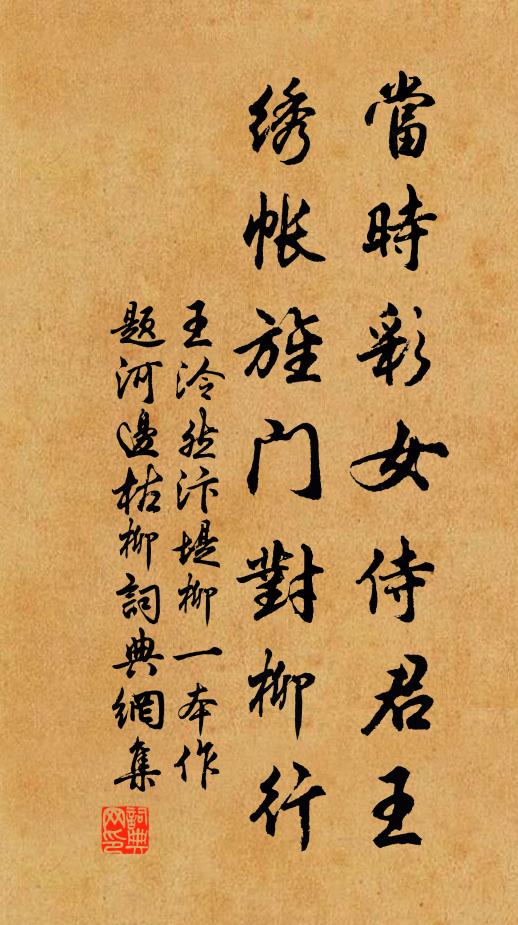 當時彩女侍君王
绣帐旌门對柳行
王泠然汴堤柳一本作
题河邊枯柳詞典網集
詞典
网印